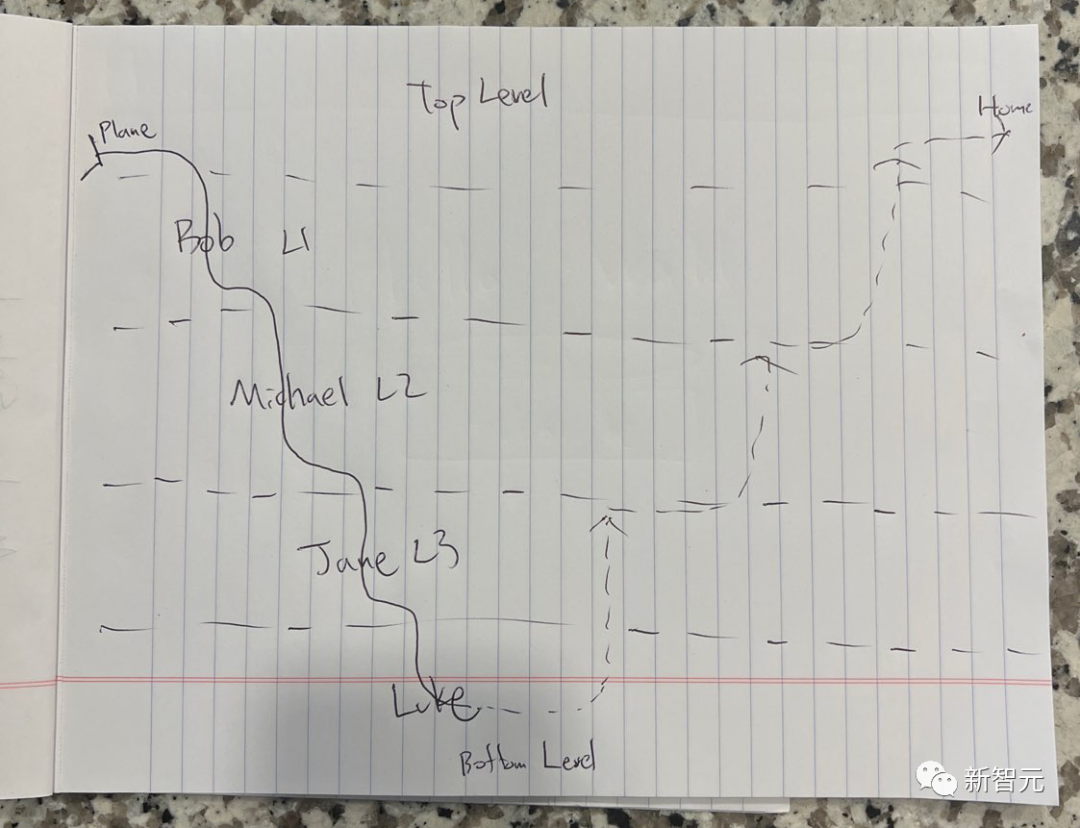 Top Level
Plane
Home
Bob L1
Michael L2
Jane L3
Luke
Bottom Level
新智元